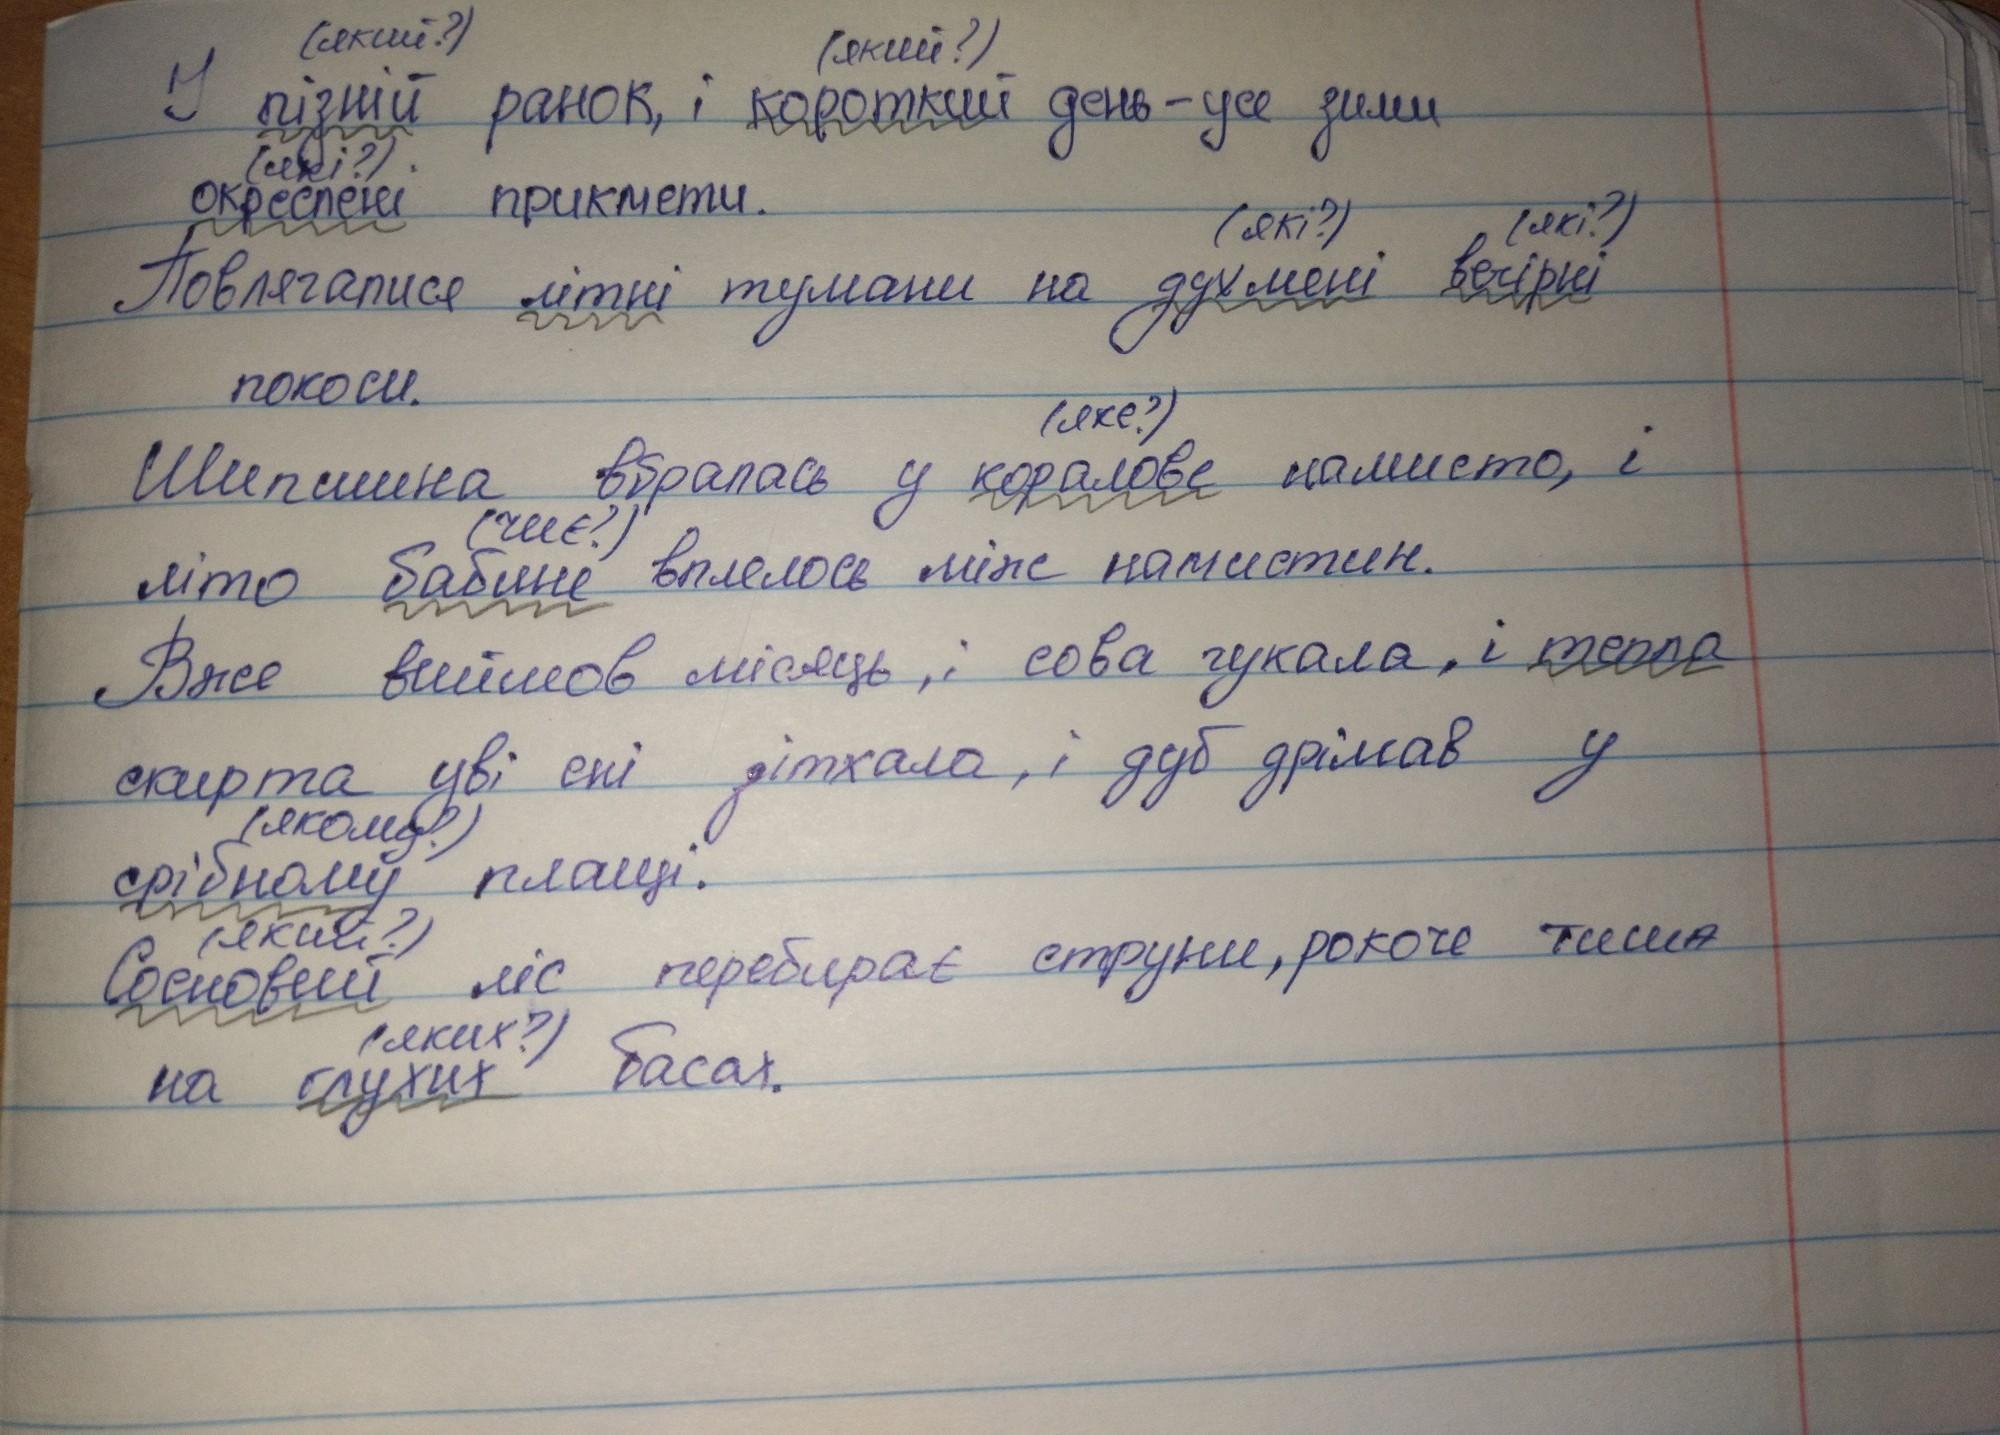 (який?) (який?)
І пізній ранок, і короткий день – усе зими
(які?)
окреслені прикмети.
(які?) (які?)
Повлягалися літні тумани на духмені вечірні
покоси.
(яке?)
Шипшина вбралась у коралове намисто, і
(чиє?)
літо бабине вплелось між намистин.
Вже вийшов місяць, і сова гукала, і тепла
скирта уві сні зітхала, і дуб дрімав у
(якому?)
срібному плащі.
(який?)
Сосновий ліс перебирає струни, рокоче тиша
(яких?)
на глухих басах.